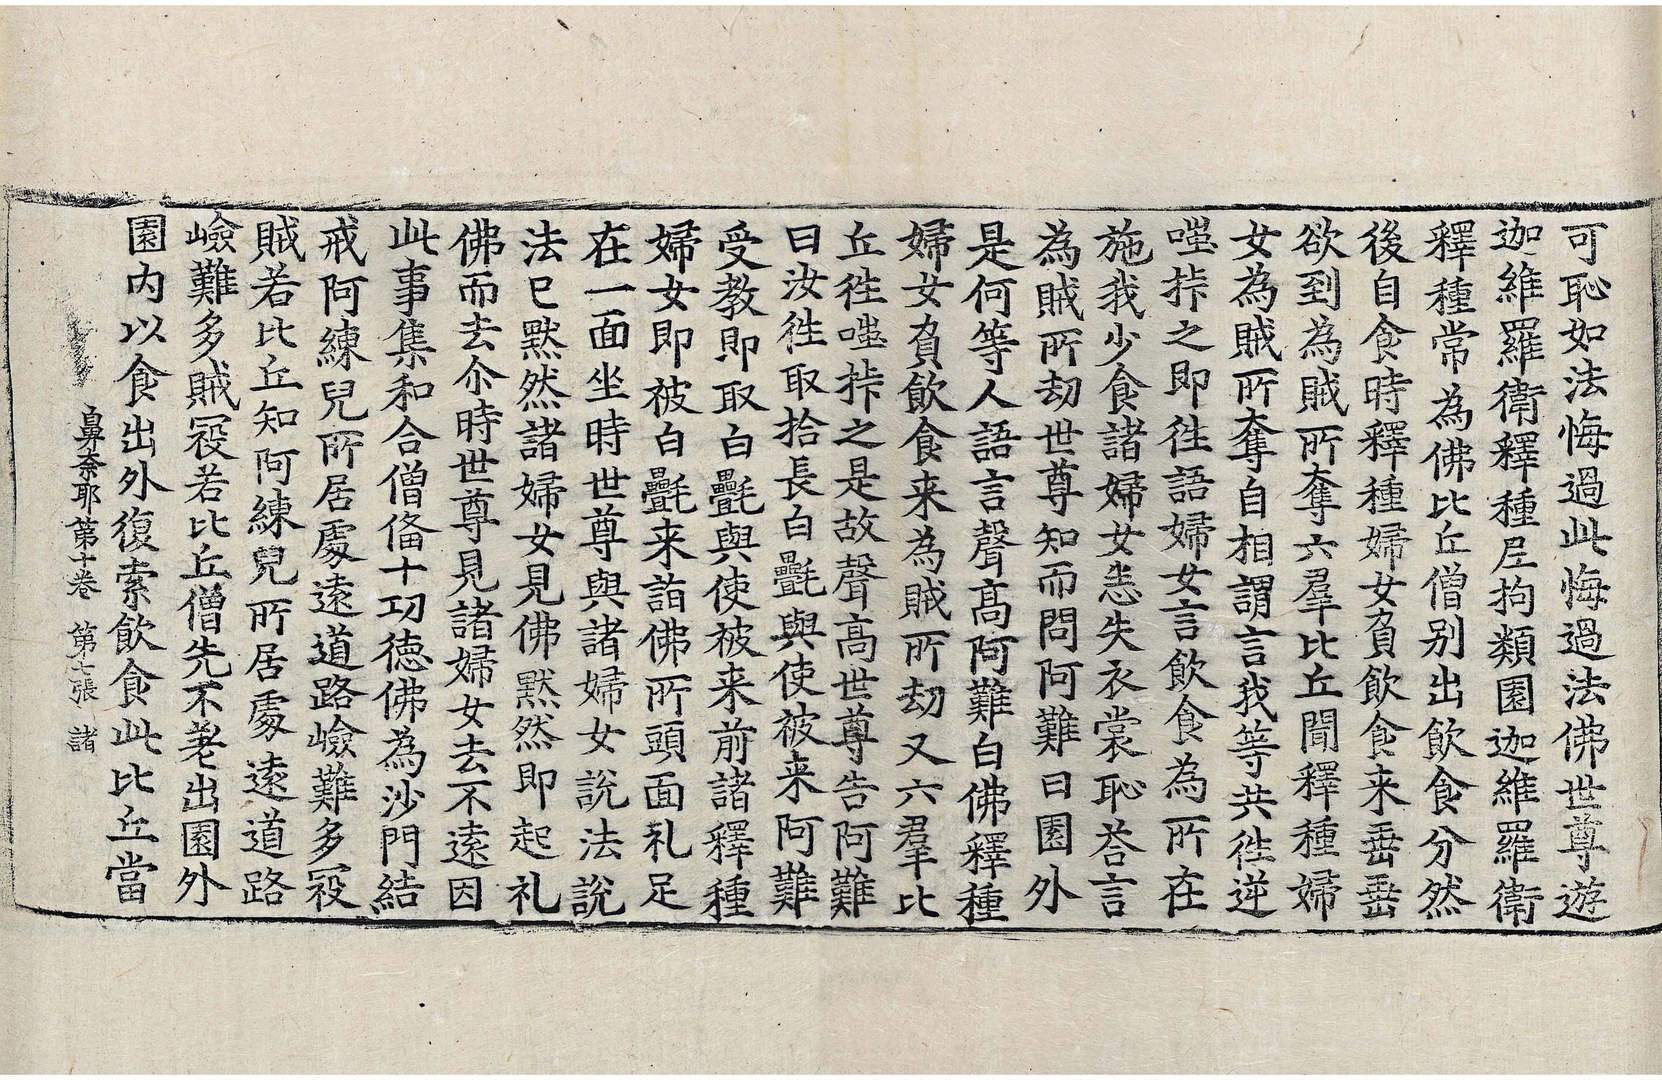 可恥如法悔過此悔過法佛世尊遊
迦維羅衛釋種尼拘類園迦維羅衛
釋種常為佛比丘僧別出飲食分然
後自食時釋種婦女負飲食来垂垂
欲到為賊所奪六羣比丘聞釋種婦
女為賊所奪自相謂言我等共徃逆
嗤㧊之即徃語婦女言飲食為所在
施我少食諸婦女恚失衣裳恥荅言
為賊所劫世尊知而問阿難曰園外
是何等人語言聲髙阿難白佛釋種
婦女負飲食来為賊所劫又六羣比
丘徃嗤㧊之是故聲高世尊告阿難
曰汝徃取拾長白㲲與使被来阿難
受教即取白㲲與使被来前諸釋種
婦女即被白㲲来詣佛所頭面礼足
在一面坐時世尊與諸婦女說法說
法已默然諸婦女見佛默然即起礼
佛而去尒時世尊見諸婦女去不遠因
此事集和合僧俻十功徳佛為沙門結
戒阿練兒所居處遠道路嶮難多㓂
賊若比丘知阿練兒所居處遠道路
嶮難多賊㓂若比丘僧先不差出園外
園内以食出外復索飲食此比丘當
鼻奈耶第十卷 第七張 諸